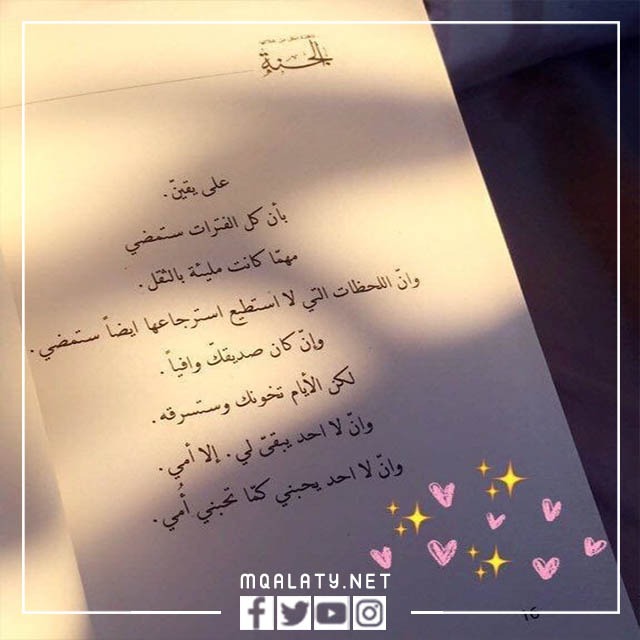 الجنة
على يقينّ.
بأن كل الفترات ستمضي
مهمّا كانت مليئة بالثقل.
وانّ اللحظات التي لا استطيع استرجاعها ايضاً ستمضي.
وإنّ كان صديقكّ وافياً.
لكن الأيام تخونك وستسرقه.
وانّ لا احد يبقىّ لي. إلا أمي.
وانّ لا احد يحبني كمّا تحبني أُمي.
MQALATY.NET